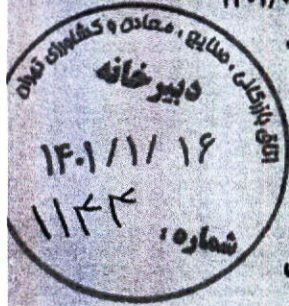 اتاق بازرگانی ، صنایع ، معادن و کشاورزی تهران
دبیرخانه
۱۴۰۱/۱/ ۱۶
شماره :